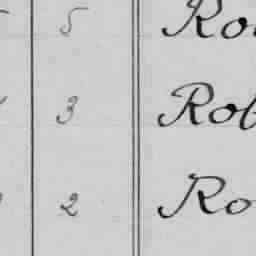 5 Ro
3 Rob
2 Ro